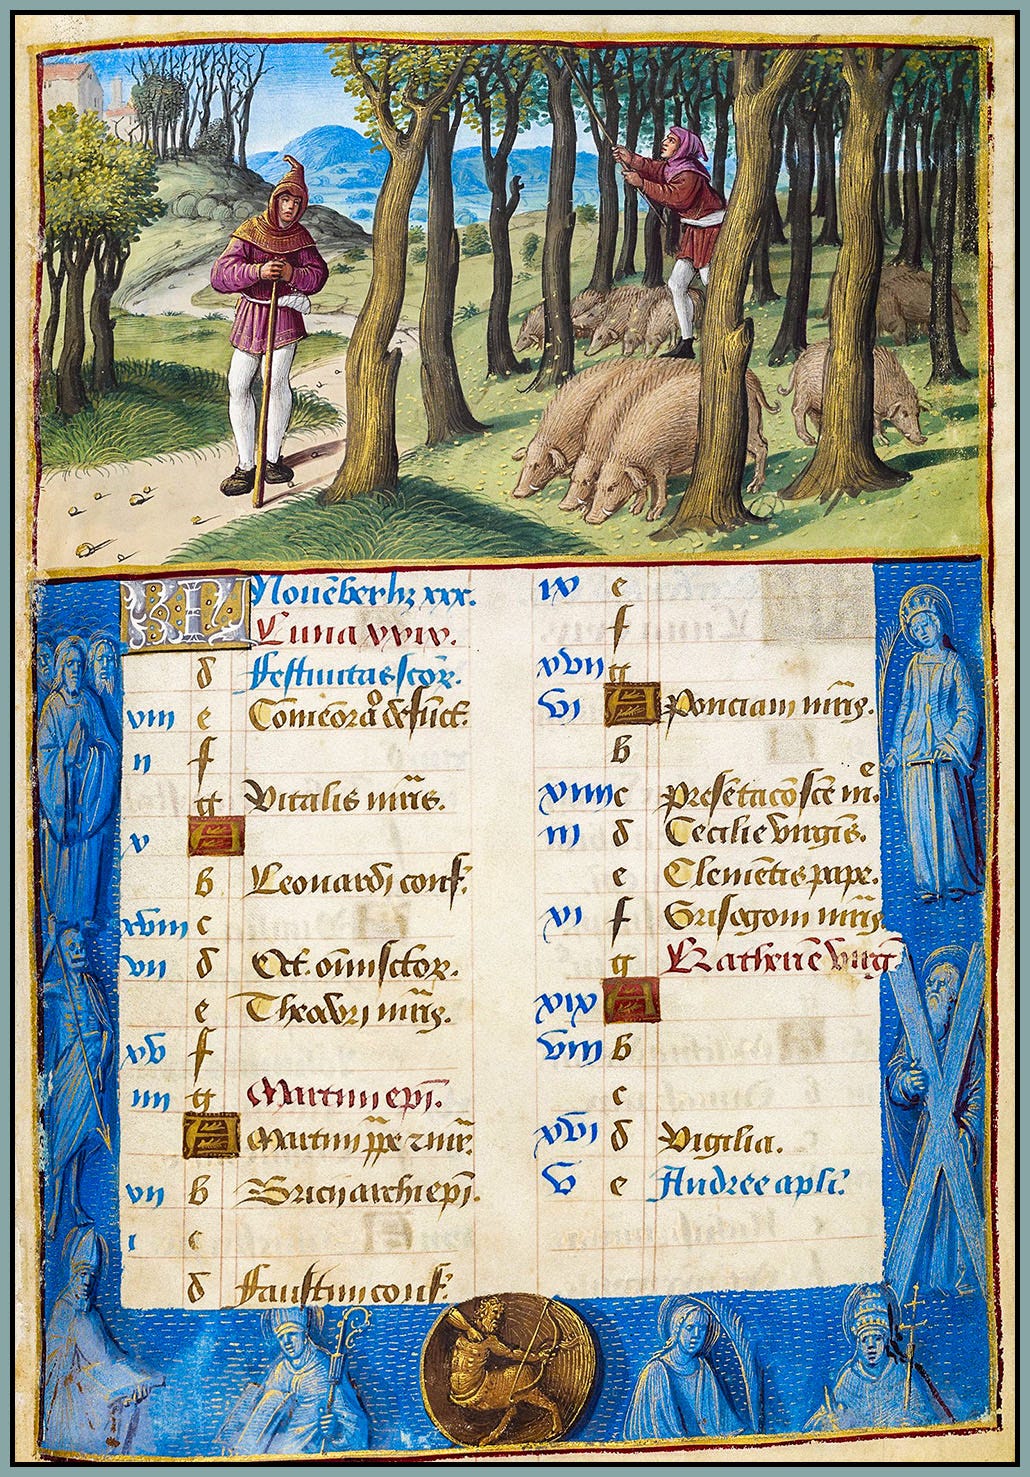 KL Nouēber hʒ xxx.
Luna xxix.
d Festiuitas scōꝝ.
viii e Comēora° defūct̄.
ii f
g Vitalis mr̄is.
v A
b Leonardi conf.
xviii c
vii d Oct. om̄i sctoꝝ.
e Theodri mr̄is.
xv f
iiii g Martini ep̄i.
A Martini ꝑpe ⁊ mr̄.
vii b Bricii archiep̄i.
i c
d Faustini conf.
ix e
f
xvii g
vi A Ponciani mr̄is.
b
xiiii c Presētacō scē m.e
iii d Cecilie virgīs.
e Clemētis pape.
xi f Grisogoni mr̄is
g Katherīe virḡ
xix A
viii b
c
xvi d Vigilia.
v e Andree apl̄i.